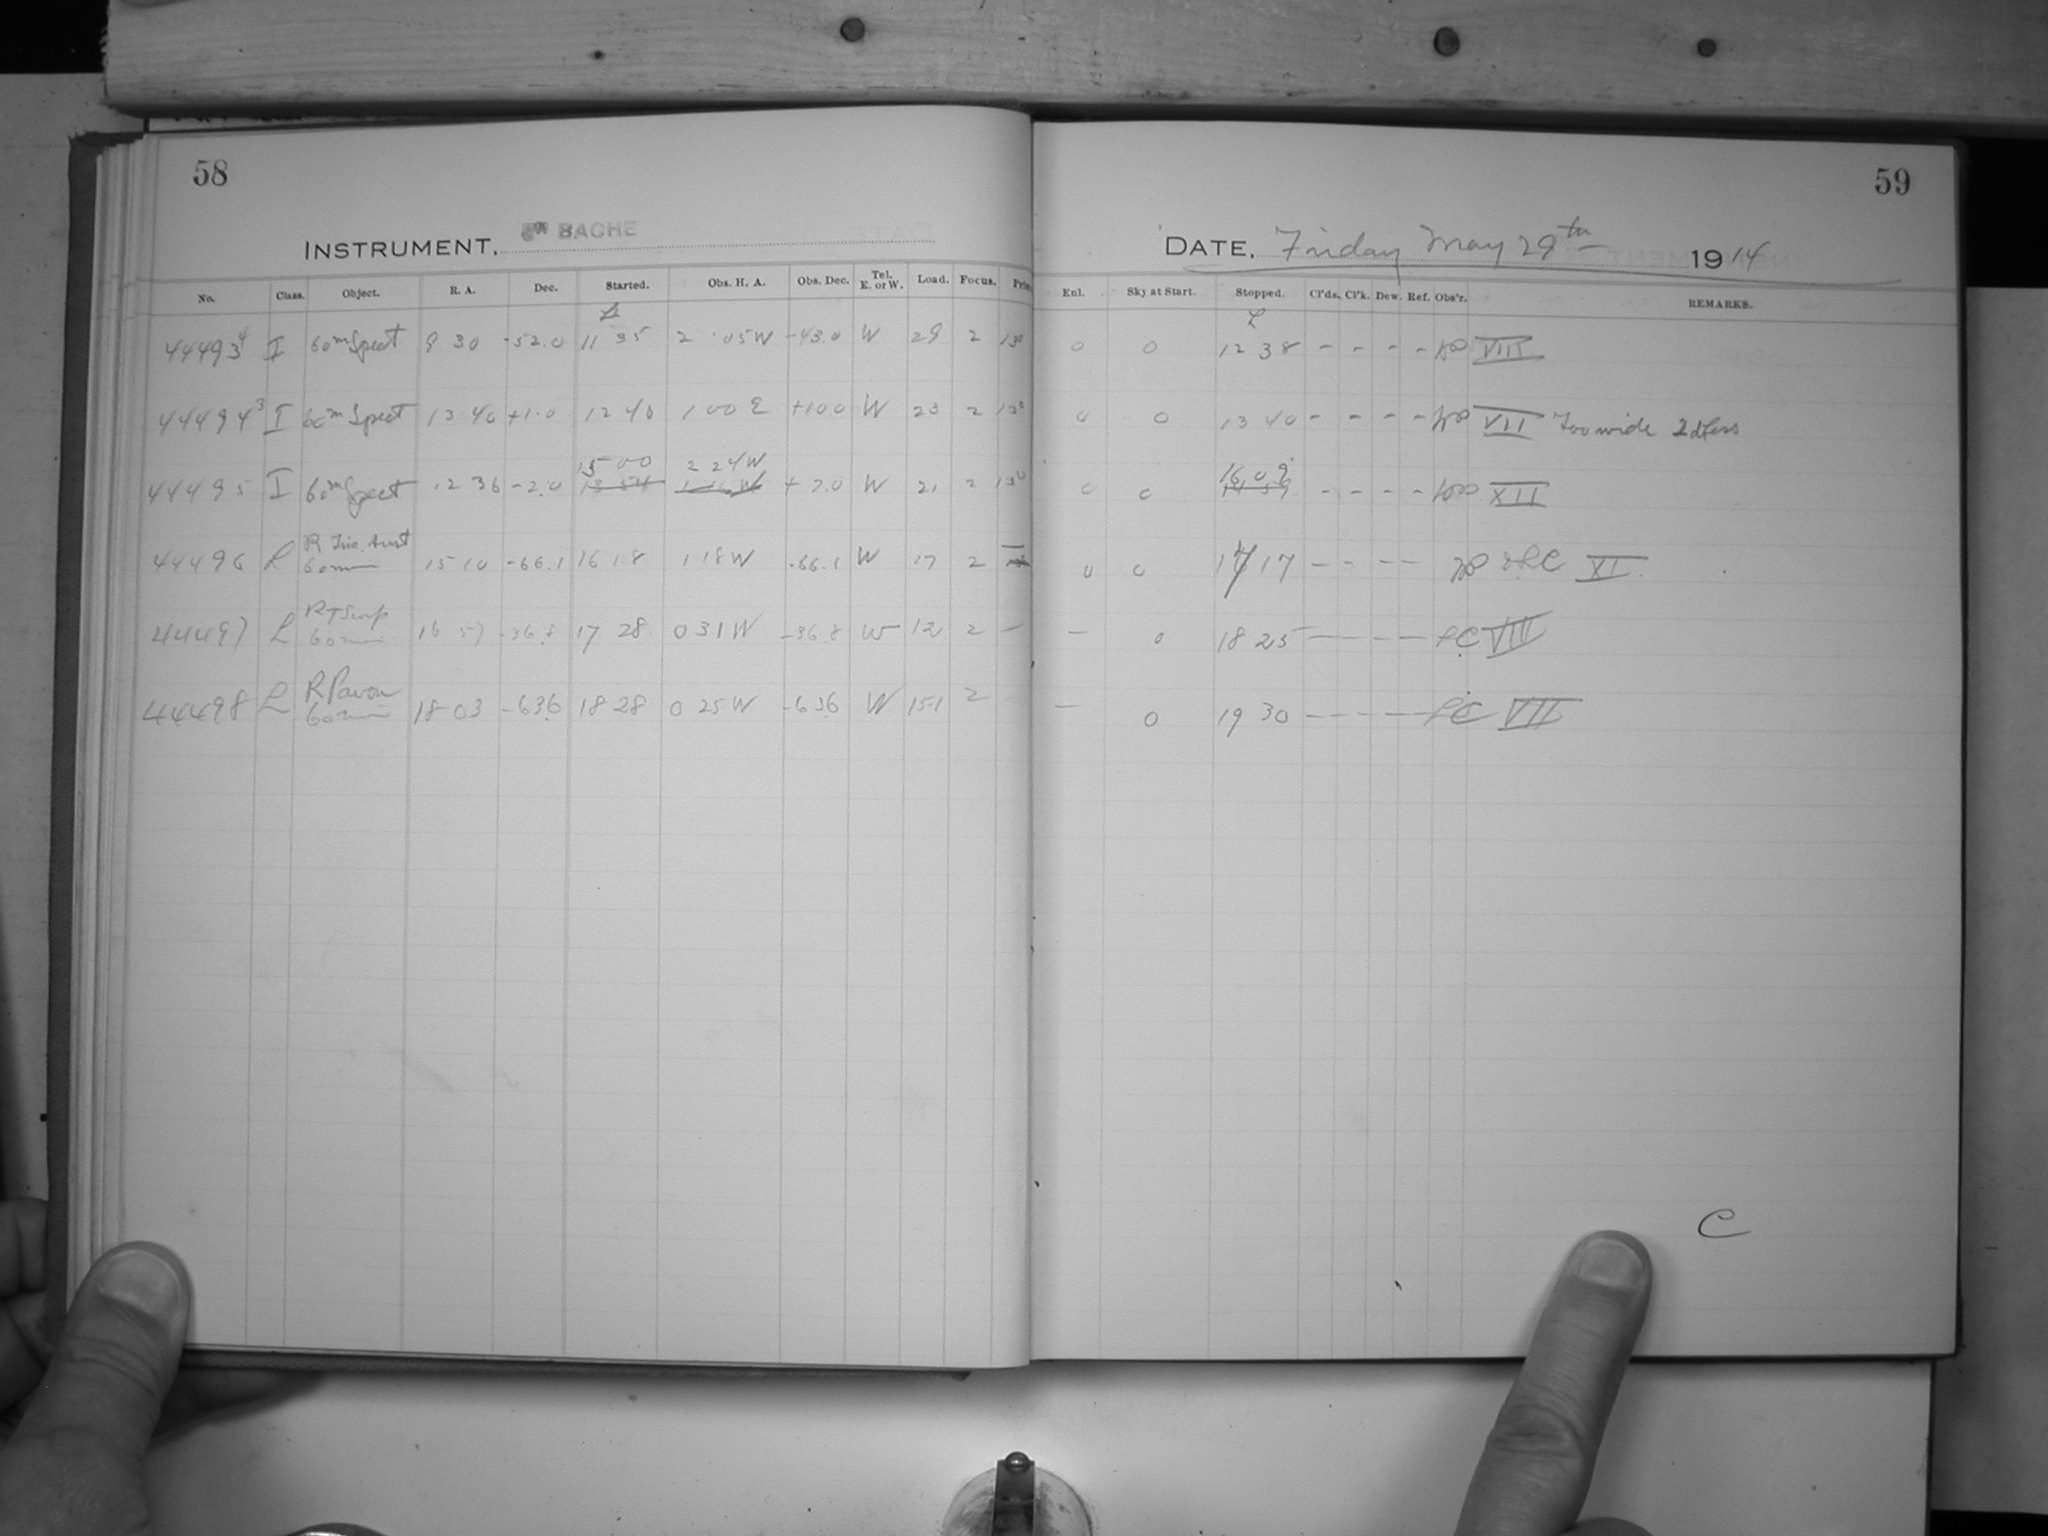 58
INSTRUMENT. BACHE
No. Class. Object. R. A. Dec. Started. Obs. H. A. Obs. Dec. Tel. E. or W. Load. Focus. Pris.
44493 4 I 60m Spect 9 30 -52.0 11 35 2 05W -43.0 W 29 2 13°
44494 3 I 60m Spect 13 40 +1.0 12 40 1 00 E +10.0 W 23 2 13°
15 00 2 24W
44495 I 60m Spect 12 36 -2.0 13 54 1 16 W +7.0 W 21 2 13°
R Tri. Aust
44496 L 60min 15 10 -66.1 16 18 1 18W -66.1 W 17 2 —
RT Scorp
44497 L 60min 16 57 -36.8 17 28 0 31W -36.8 W 12 2 —
R Pavon
44498 L 60min 18 03 -63.6 18 28 0 25W -63.6 W 15.1 2
59
DATE, Friday May 29th 1914
Enl. Sky at Start. Stopped. Cl'ds. Cl'k. Dew. Ref. Obs'r. REMARKS.
0 0 12 38 - - - - VIII
0 0 13 40 - - - - VII Too wide
16 09
0 0 14 59 - - - - XII
0 0 17 17 - - - - XI
— 0 18 25 — — — — VIII
— 0 19 30 - - - - VII
C